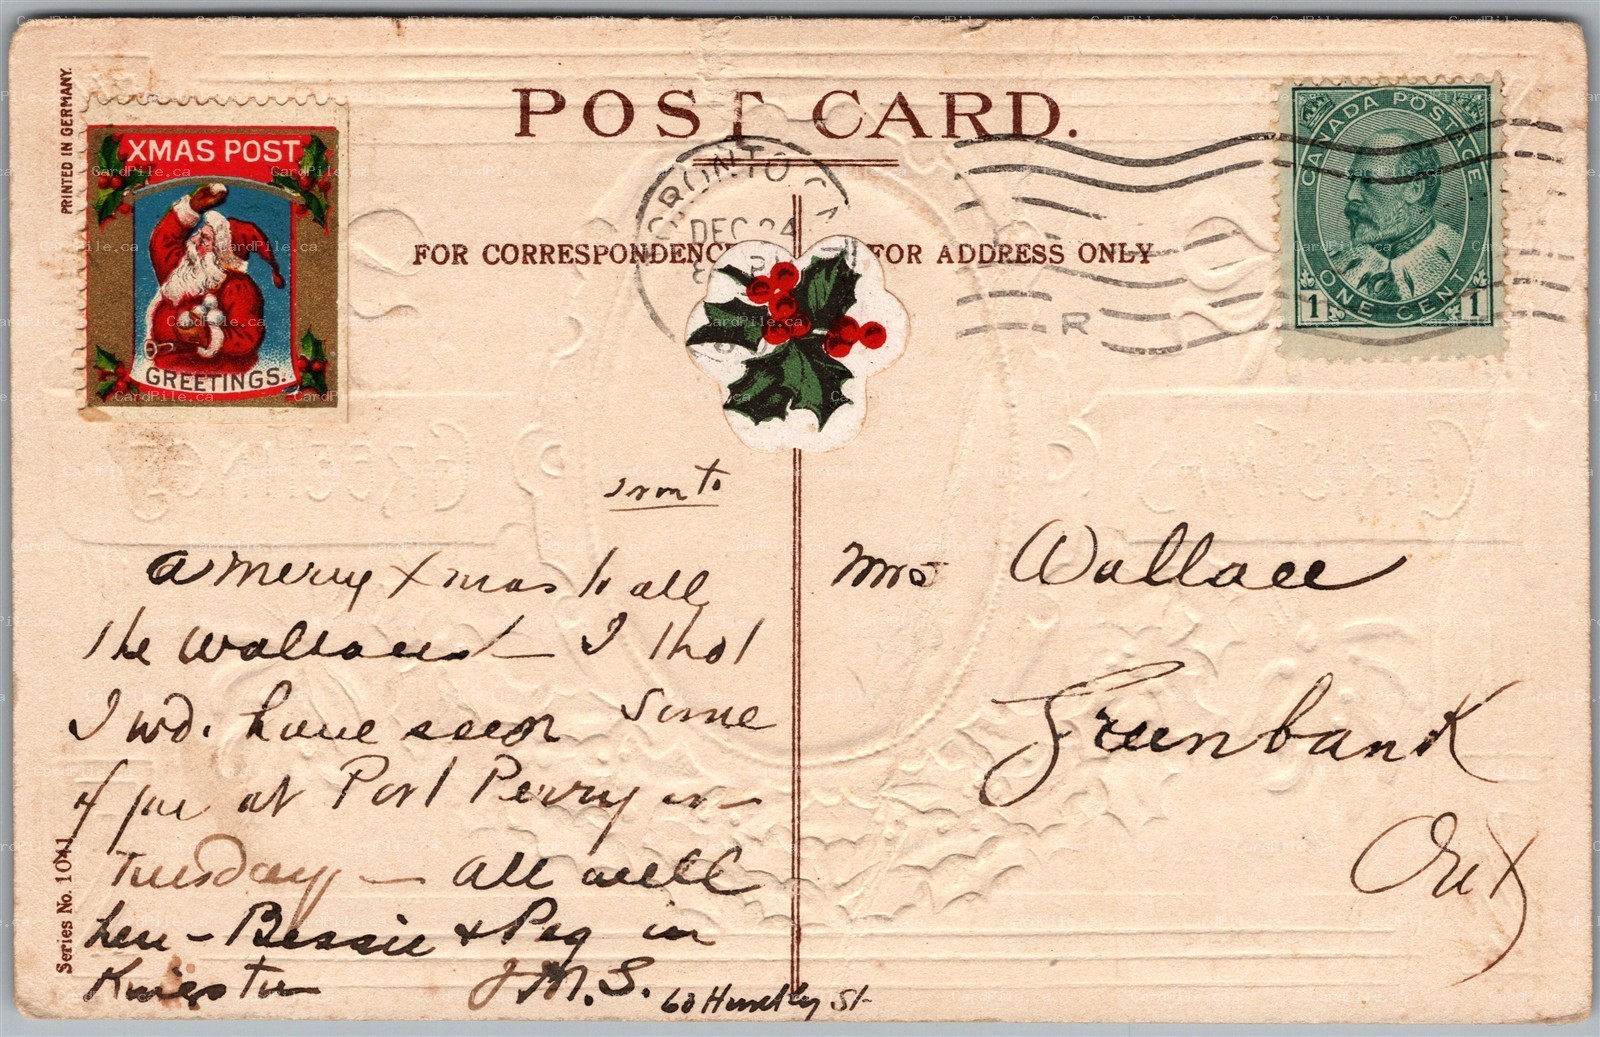 PRINTED IN GERMANY.
XMAS POST
GREETINGS.
POST CARD.
TORONTO
DEC 24
FOR CORRESPONDENCE
FOR ADDRESS ONLY
R
CANADA POSTAGE
1 ONE CENT 1
GREETINGS
CHRISTMAS
Tronto
A merry Xmas to all
the Wallaces — I thot
I wd. have seen some
of you at Port Perry on
Tuesday — All well
here – Bessie & Peg in
Kingston J.M.S. 60 Huntley St
Mrs Wallace
Greenbank
Ont
Series No. 1041
CardPile.ca